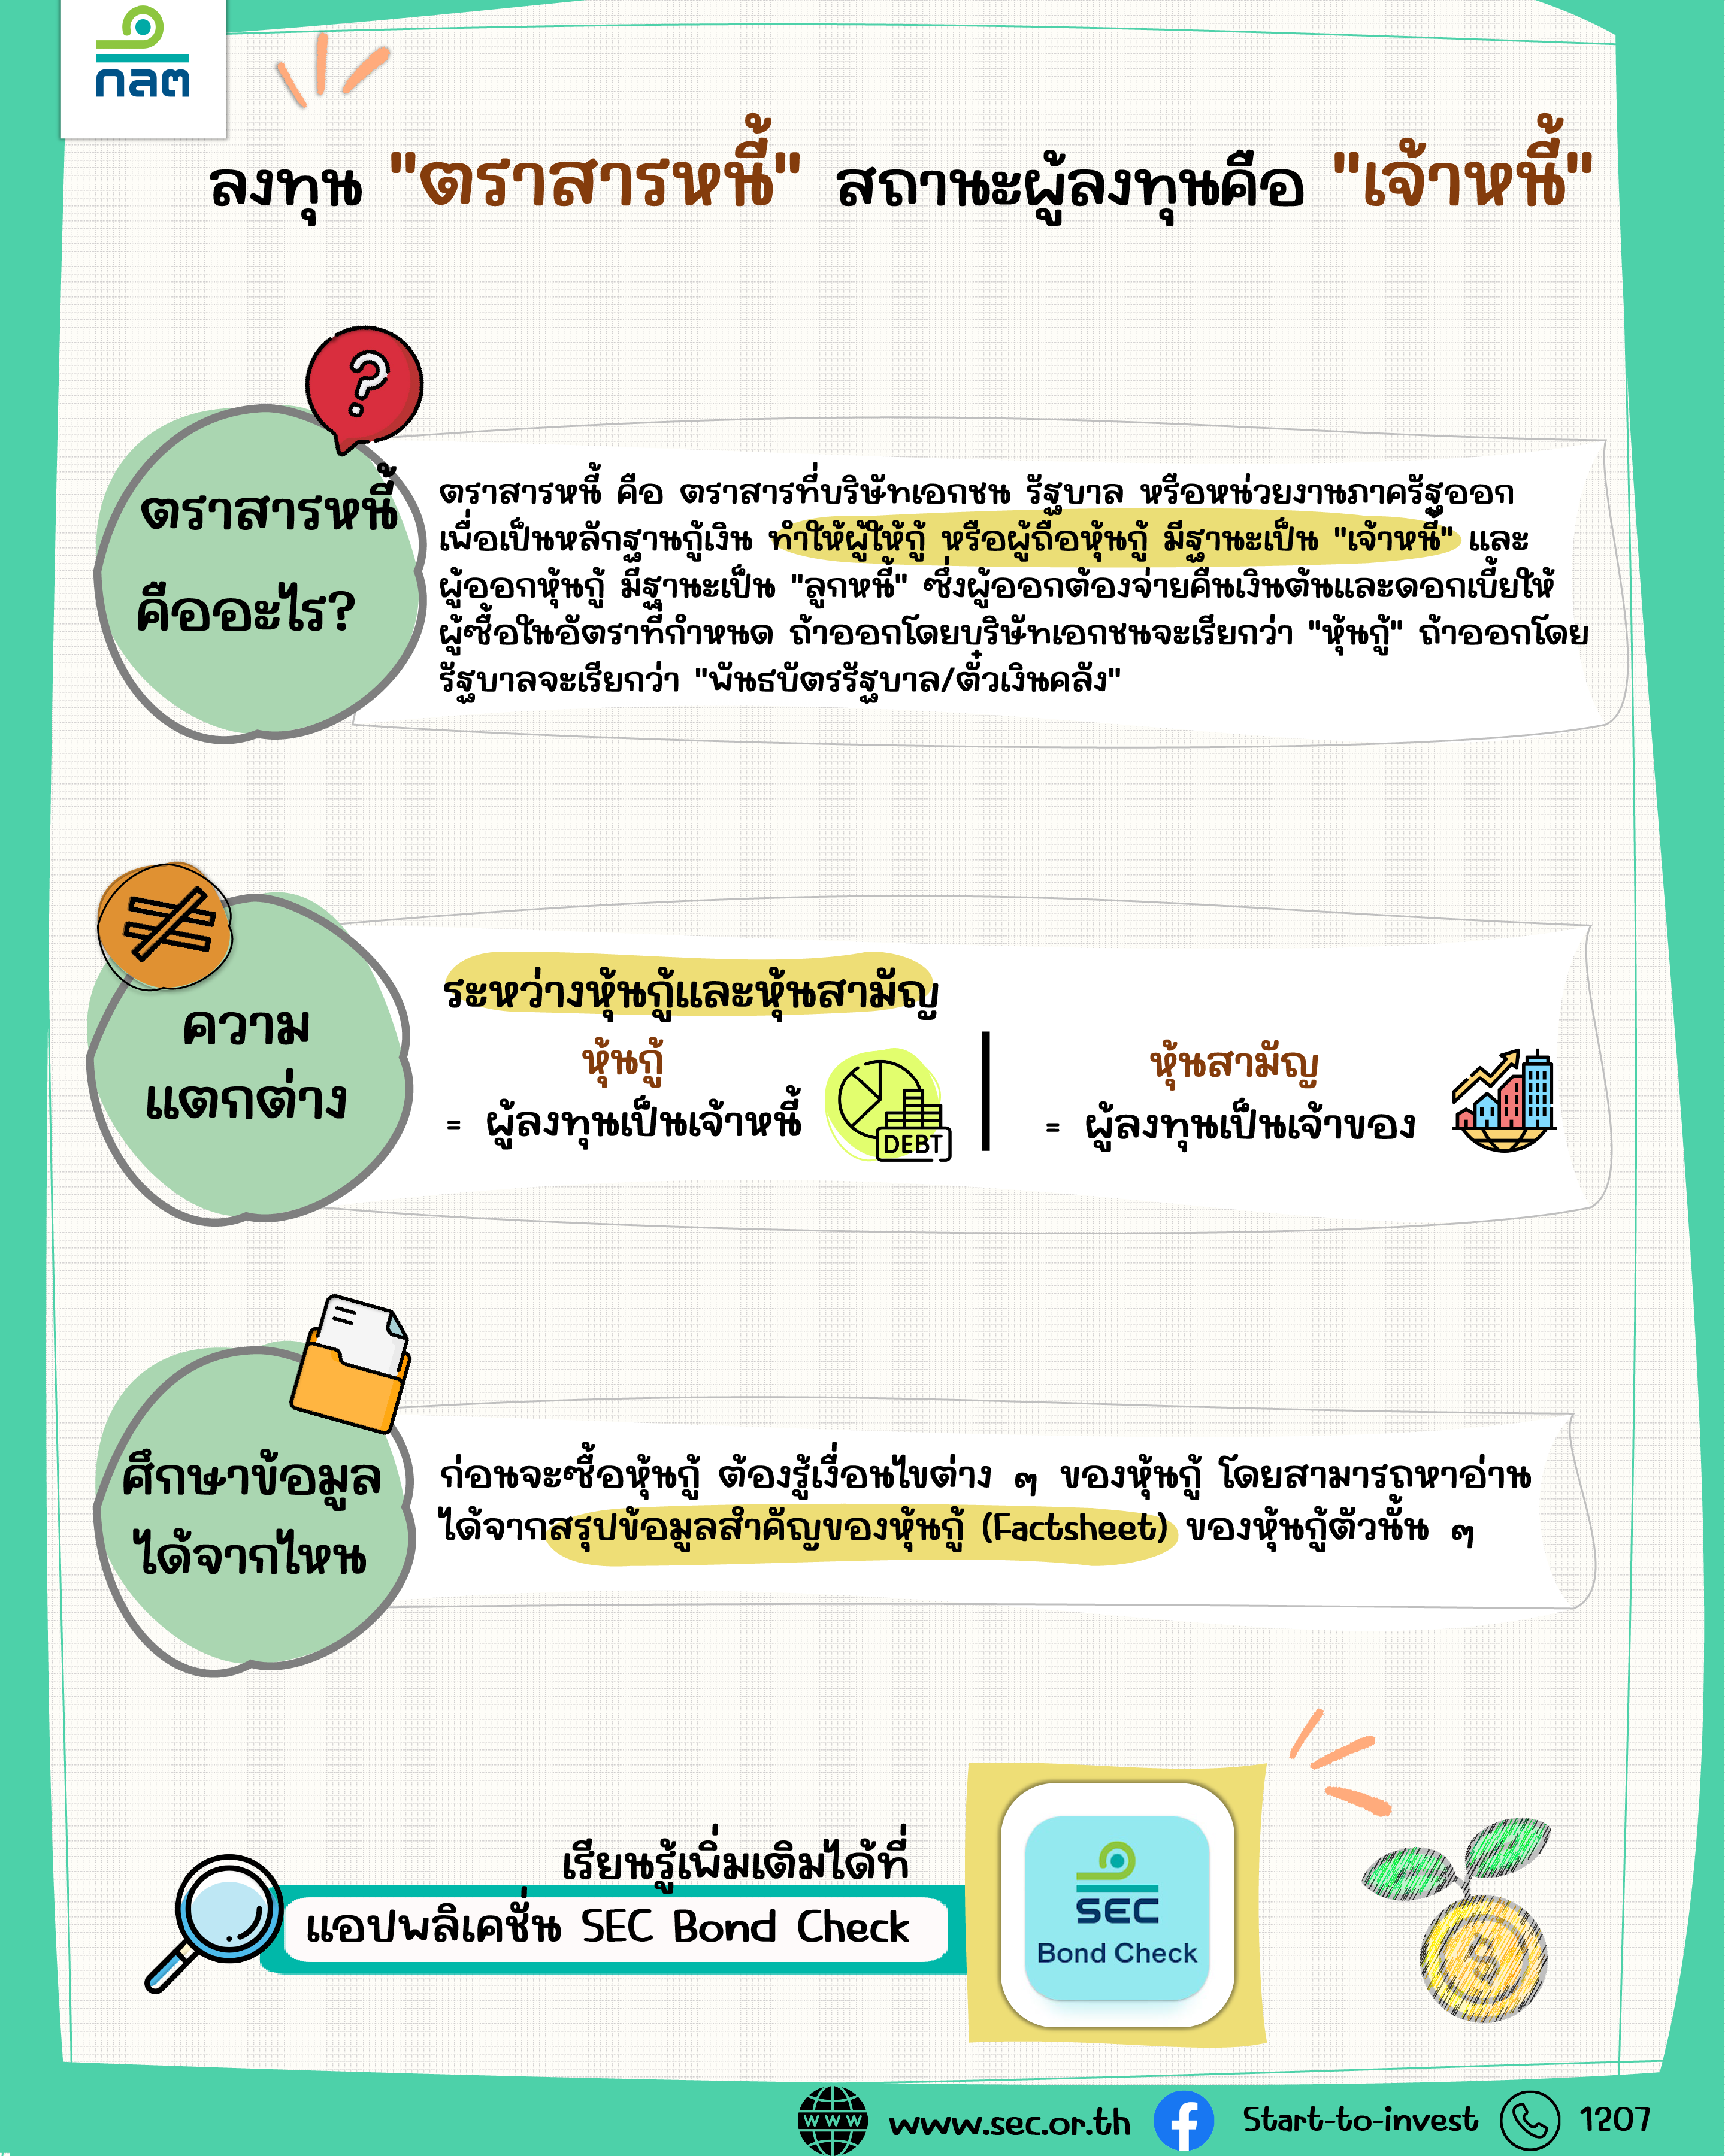 กลต
ลงทุน "ตราสารหนี้" สถานะผู้ลงทุนคือ "เจ้าหนี้"
ตราสารหนี้
คืออะไร?
ตราสารหนี้ คือ ตราสารที่บริษัทเอกชน รัฐบาล หรือหน่วยงานภาครัฐออก
เพื่อเป็นหลักฐานกู้เงิน ทำให้ผู้ให้กู้ หรือผู้ถือหุ้นกู้ มีฐานะเป็น "เจ้าหนี้" และ
ผู้ออกหุ้นกู้ มีฐานะเป็น "ลูกหนี้" ซึ่งผู้ออกต้องจ่ายคืนเงินต้นและดอกเบี้ยให้
ผู้ซื้อในอัตราที่กำหนด ถ้าออกโดยบริษัทเอกชนจะเรียกว่า "หุ้นกู้" ถ้าออกโดย
รัฐบาลจะเรียกว่า "พันธบัตรรัฐบาล/ตั๋วเงินคลัง"
ความ
แตกต่าง
ระหว่างหุ้นกู้และหุ้นสามัญ
หุ้นกู้
= ผู้ลงทุนเป็นเจ้าหนี้
DEBT
หุ้นสามัญ
= ผู้ลงทุนเป็นเจ้าของ
ศึกษาข้อมูล
ได้จากไหน
ก่อนจะซื้อหุ้นกู้ ต้องรู้เงื่อนไขต่าง ๆ ของหุ้นกู้ โดยสามารถหาอ่าน
ได้จากสรุปข้อมูลสำคัญของหุ้นกู้ (Factsheet) ของหุ้นกู้ตัวนั้น ๆ
เรียนรู้เพิ่มเติมได้ที่
แอปพลิเคชั่น SEC Bond Check
SEC
Bond Check
WWW www.sec.or.th Start-to-invest 1207